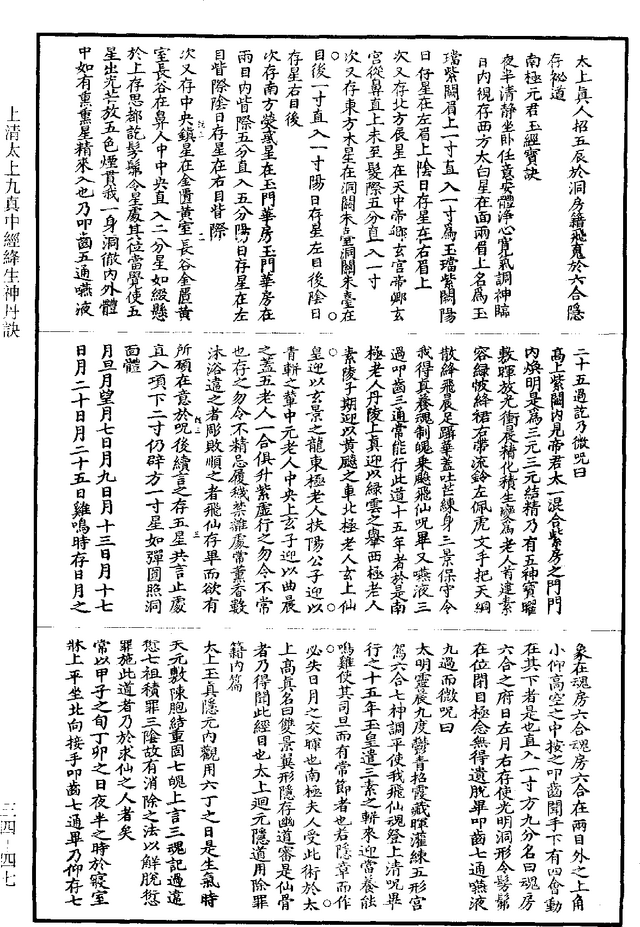 太上真人招五辰於洞房籍飛蒐於六合隱
存祕道
南極元君玉經寶訣
夜半清静坐卧任意安體浄心寬氣調神瞑
目内視存西方太白星在面兩眉上名爲玉
璫紫闕眉上一寸直入一寸爲玉璫紫闕陽
日存星在左眉上陰日存星在右眉上
次又存北方辰星在天中帝鄉玄宫帝鄉玄
宫從鼻直上未至髮際五分直入一寸
次又存東方木星在洞闕朱臺洞闕朱臺在
目後一寸直入一寸陽日存星左目後陰日
存星右目後
次存南方熒惑星在玉門華房玉門華房在
兩目内眥際五分直入五分陽日存星在左
目眥際陰日存星在右目眥際
次又存中央鎮星在金匱黄室長谷金匱黄
室長谷在鼻人中中央直入二分星如綴懸
於上存思都訖髣髴令星處其位當覺使五
星出光芒放五色煙貫我一身洞徹内外體
中如有熏熏星精來入也乃叩齒五通嚥液
二十五過訖乃微呪曰
高上紫闕内見帝君太一混合紫房之門門
内焕明是爲三元三元結精乃有五神寶曜
敷暉放光衝晨精化積生變爲老人首建素
容緑帔絳裙右帶流鈴左佩虎文手把天綱
散絳飛晨足躡華蓋吐芒練身三景保守令
我得真養魂制魄乘飈飛仙呪畢又嚥液三
過叩齒三通常能行此道十五年者於是南
極老人丹陵上真迎以緑雲之轝西極老人
素陵子期迎以黄飈之車北極老人玄上仙
皇迎以玄景之龍東極老人扶陽公子迎以
青軿之輦中元老人中央上玄子迎以曲晨
之蓋五老人一合俱升紫虚行之勿令不常
也存之勿令不精忌履穢禁雜處常薰香數
沐浴遠之者彫敗順之者飛仙存畢而欲有
所碩在意於呪後續言之存五星共言止處
直入項下二寸仍辟方一寸星如彈圓照洞
面體
月旦月望月七日月九日月十三日月十七
日月二十日月二十五日雞鳴時存日月之
象在魂房六合魂房六合在兩目外之上角
小仰高空之中按之叩齒聞手下有四會動
在其下者是也直入一寸方九分名曰魂房
六合之府日左月右存使光明洞形令髣髴
在位閉目極念無得遺脱畢叩齒七通嚥液
九過而微呪曰
太明靈晨九度鬱青招霞藏暉灌練五形宫
駕六合七神調平使我飛仙魂登上清呪畢
行之十五年玉皇遣三素之軿來迎當養能
鳴雞使其司旦而有常節者也若隱章而作
必失日月之交暉也南極夫人受此術於太
上高真名曰雙景翼形隱存幽道審是仙骨
者乃得聞此經目也太上迴元隱道用除罪
籍内篇
太上玉真隱元内觀用六丁之日是生氣時
天元敷陳胞結重固七魄上言三魂記過遠
愆七祖積罪三陰故有消除之法以解脱愆
罪施此道者乃於求仙之人者矣
常以甲子之旬丁卯之日夜半之時於寢室
牀上平坐北向接手叩齒七通畢乃仰存七
上清太上九真中經絳生神丹訣
三四-四七